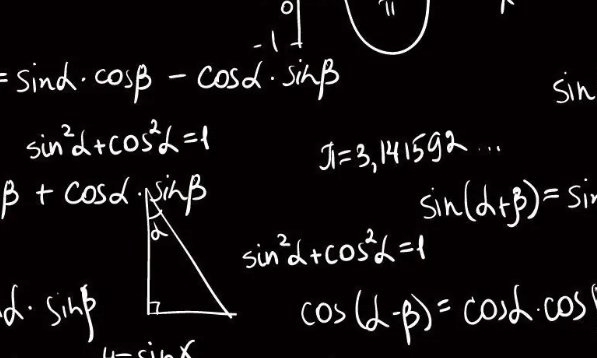 0
π
-1
= sinα · cosβ − cosα · sinβ
sin
sin²α+cos²α=1
π=3,141592...
β + cosα · sinβ
sin(α+β)= sin
α
sin²α+cos²α=1
α · sinβ
cos(α-β)= cosα·cosβ
y=sinx